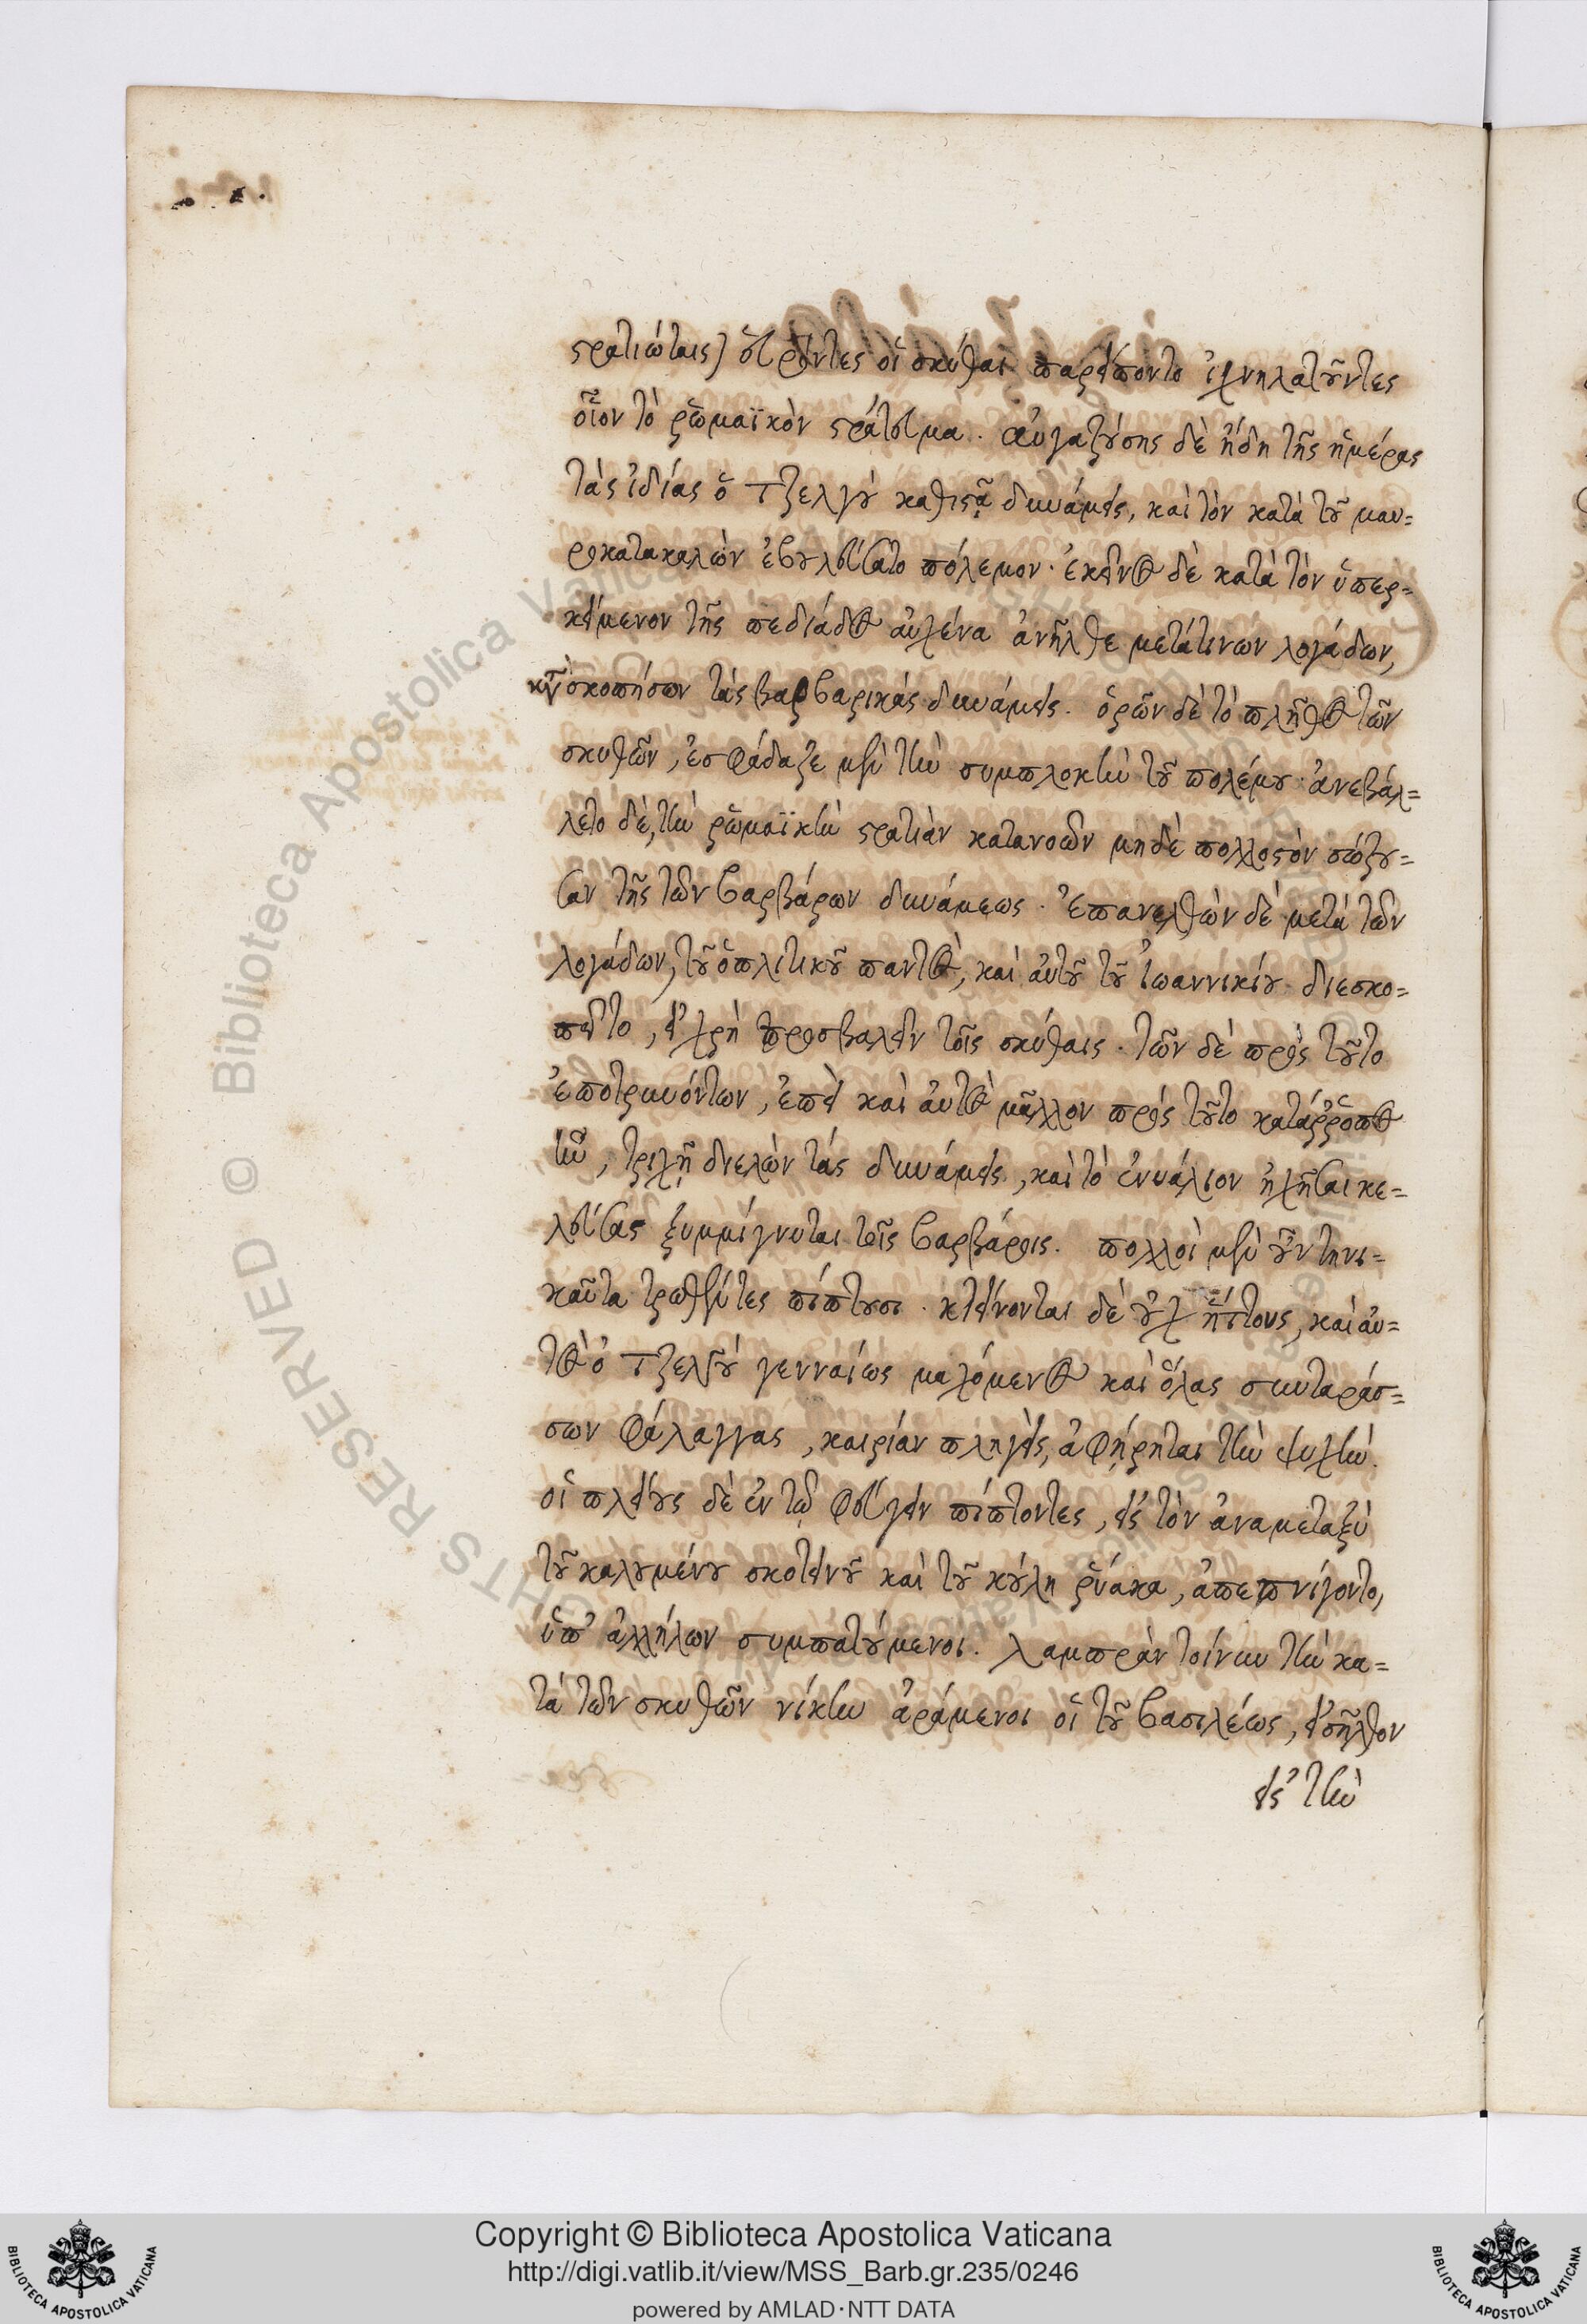 στρατιώταις) εὑρόντες οἱ σκύθαι παρείποντο ἰχνηλατοῦντες
οἷον τὸ ῥωμαϊκὸν στράτευμα. αὐγαζούσης δὲ ἤδη τῆς ἡμέρας
τὰς ἰδίας ὁ Τζελγοὺ καθιστᾷ δυνάμεις, καὶ τὸν κατὰ τοῦ μαυ=
ροκατακαλὼν ἐβουλεύσατο πόλεμον. ἐκεῖνος δὲ κατὰ τὸν ὑπερ=
κείμενον τῆς πεδιάδος αὐχένα ἀνῆλθε μετά τινων λογάδων,
κατασκοπήσων τὰς βαρβαρικὰς δυνάμεις. ὁρῶν δὲ τὸ πλῆθος τῶν
σκυθῶν, ἐσφάδαζε μὲν τὴν συμπλοκὴν τοῦ πολέμου. ἀνεβάλ=
λετο δὲ, τὴν ῥωμαϊκὴν στρατιὰν κατανοῶν μηδὲ πολλοστὸν σώζου=
σαν τῆς τῶν βαρβάρων δυνάμεως. ἐπανελθὼν δὲ μετὰ τῶν
λογάδων, τοῦ ὁπλιτικοῦ παντὸς, καὶ αὐτοῦ τοῦ ἰωαννικίου διεσκο=
πεῖτο, εἰ χρὴ προσβαλεῖν τοῖς σκύθαις. τῶν δὲ πρὸς τοῦτο
ἐποτρυνόντων, ἐπεὶ καὶ αὐτὸς μᾶλλον πρὸς τοῦτο κατάῤῥοπος
ἦν, τριχῇ διελὼν τὰς δυνάμεις, καὶ τὸ ἐνυάλιον ἠχῆσαι κε=
λεύσας ξυμμίγνυται τοῖς βαρβάροις. πολλοὶ μὲν οὖν τηνι=
καῦτα τρωθέντες πίπτουσι. κτείνονται δὲ οὐχ ἥττους, καὶ αὐ=
τὸς ὁ Τζελγοὺ γενναίως μαχόμενος καὶ ὅλας συνταράσ=
σων φάλαγγας, καιρίαν πληγεὶς, ἀφῄρηται τὴν ψυχήν.
οἱ πλείους δὲ ἐν τῷ φεύγειν πίπτοντες, εἰς τὸν ἀναμεταξὺ
τοῦ καλουμένου σκοτεινοῦ καὶ τοῦ κούλη ῥύακα, ἀπεπνίγοντο,
ὑπ' ἀλλήλων συμπατούμενοι. λαμπρὰν τοίνυν τὴν κα=
τὰ τῶν σκυθῶν νίκην ἀράμενοι οἱ τοῦ βασιλέως, εἰσῆλθον
εἰς τὴν
Copyright © Biblioteca Apostolica Vaticana
http://digi.vatlib.it/view/MSS_Barb.gr.235/0246
powered by AMLAD·NTT DATA
BIBLIOTECA APOSTOLICA VATICANA
BIBLIOTECA APOSTOLICA VATICANA